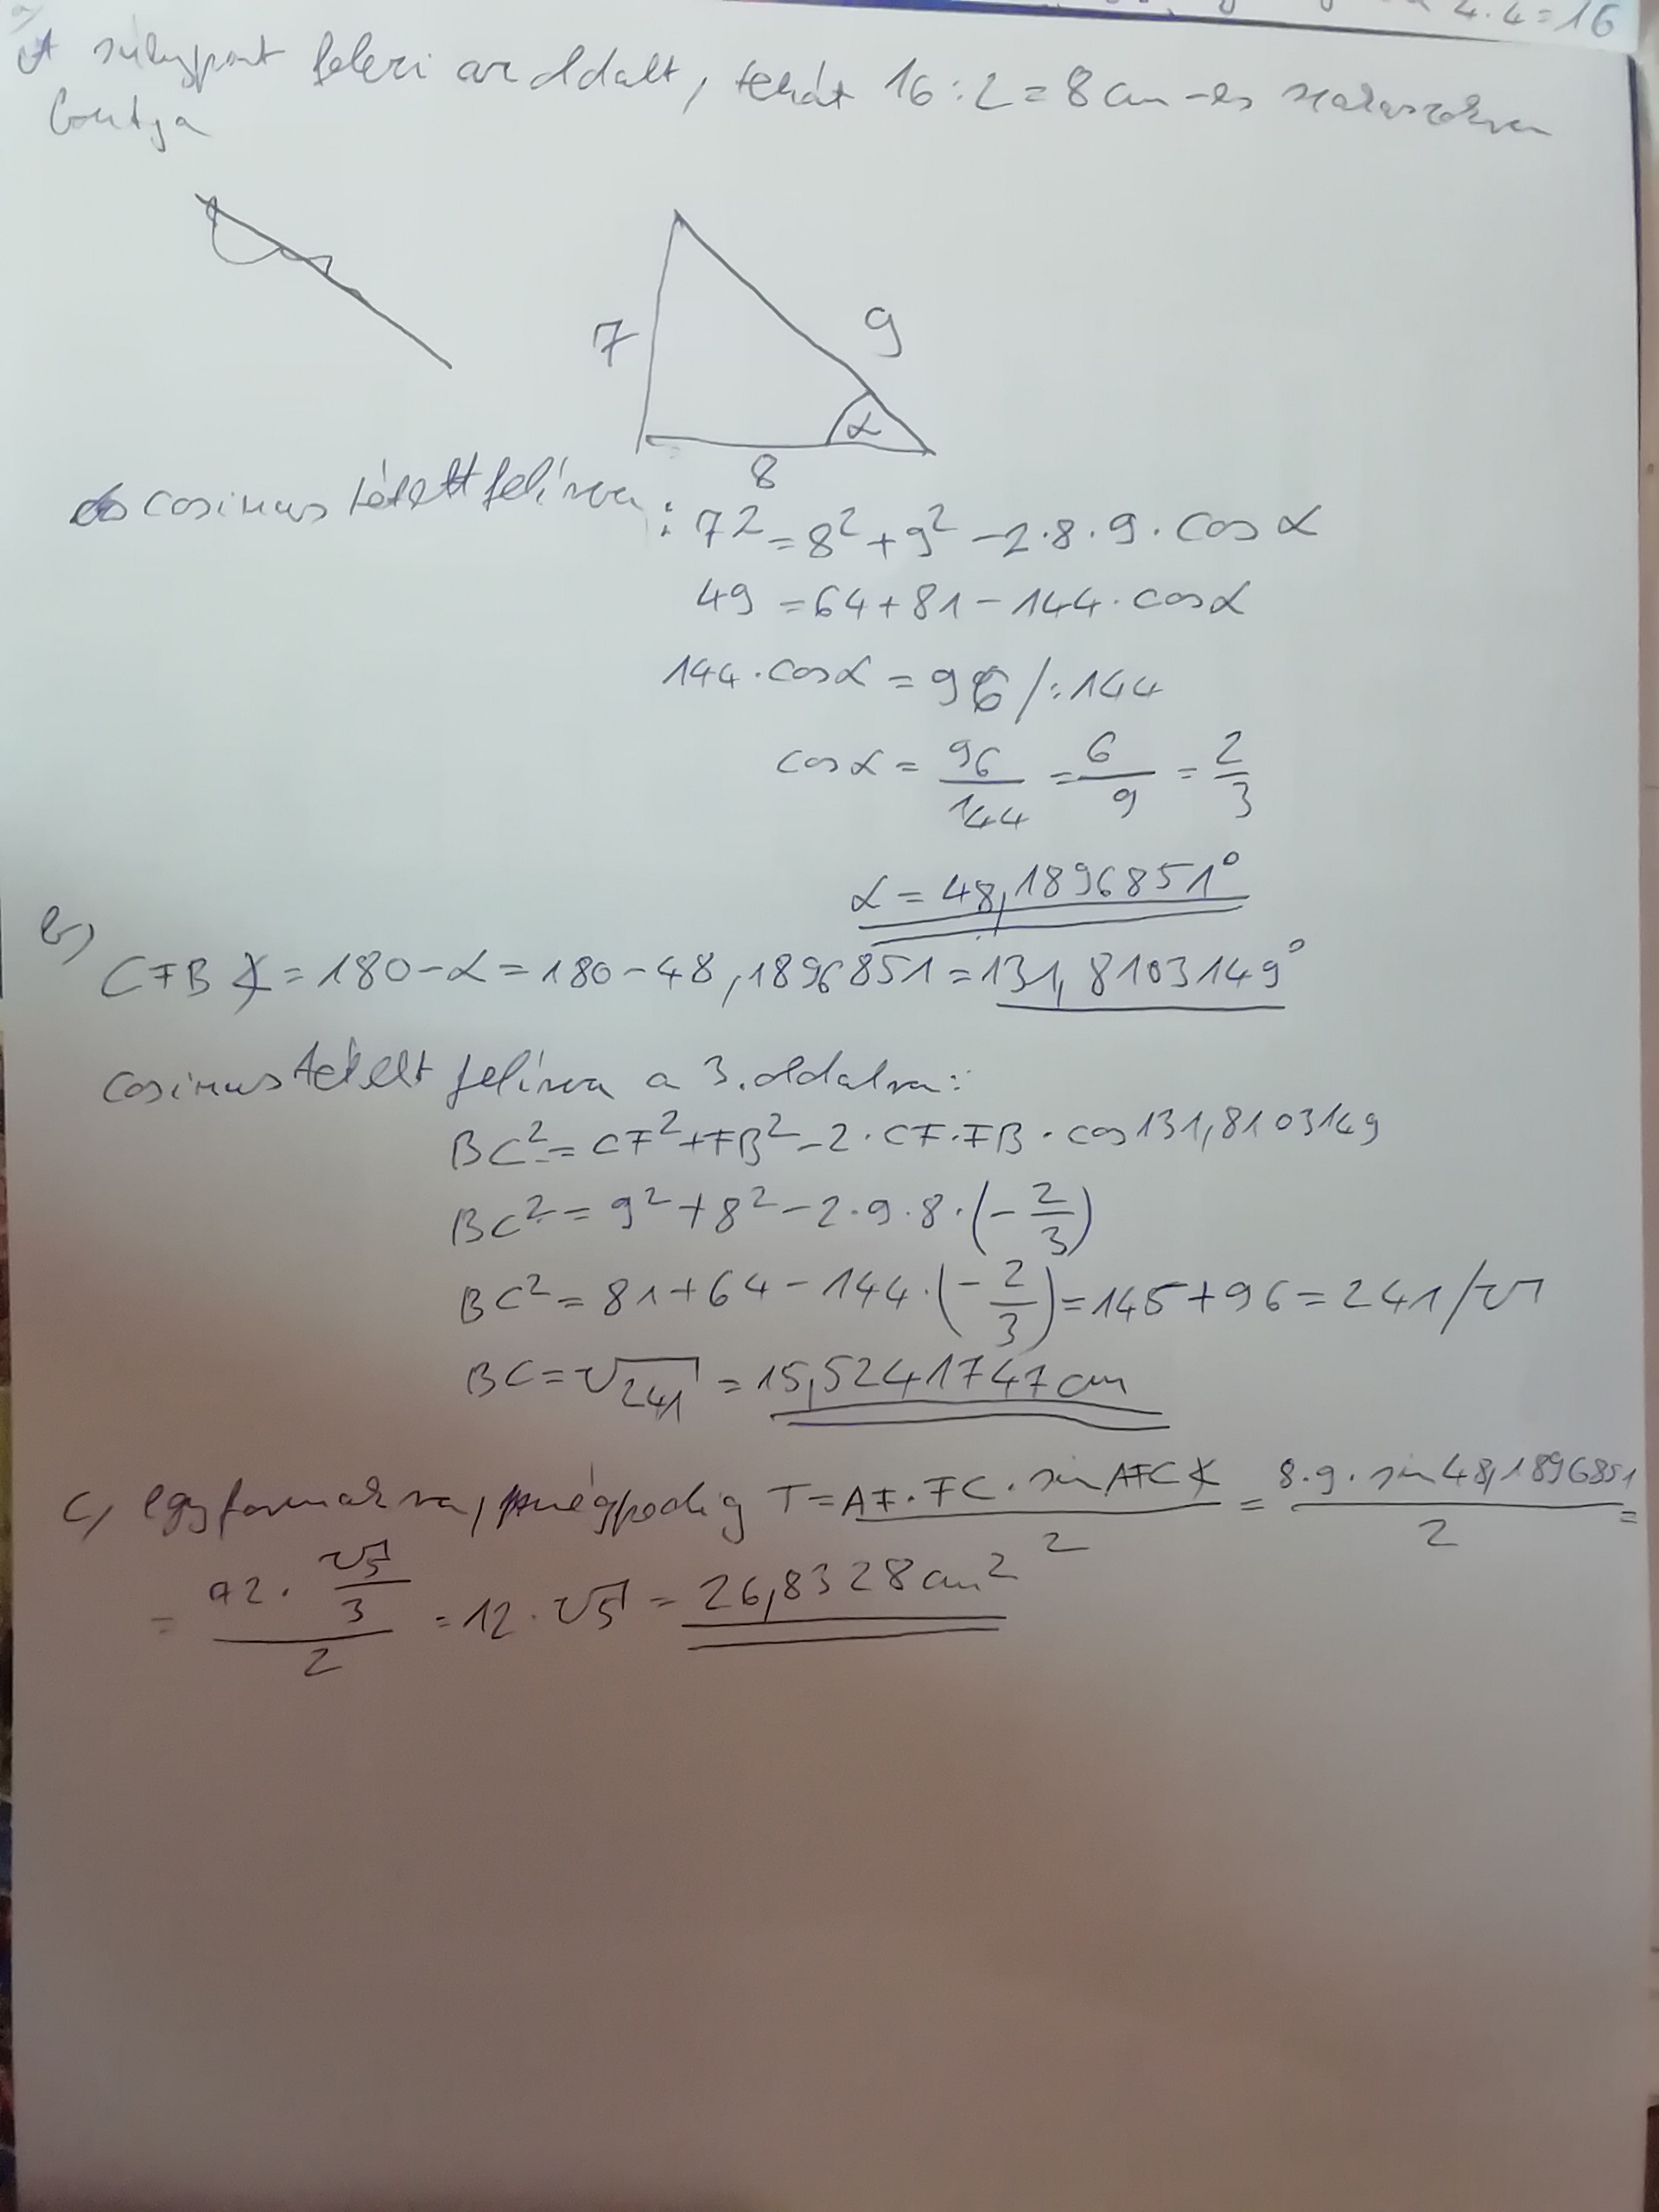 4·4=16
a)
A súlypont felezi az oldalt, tehát 16:2=8cm-es szakaszokra
bontja
7
9
α
8
cosinus tételt felírva: 7²=8²+9²-2·8·9·cosα
49=64+81-144·cosα
144·cosα=96/:144
cosα=96/144=6/9=2/3
α=48,1896851°
b)
CFB∢=180-α=180-48,1896851=131,8103149°
cosinus tételt felírva a 3. oldalra:
BC²=CF²+FB²-2·CF·FB·cos131,8103149
BC²=9²+8²-2·9·8·(-2/3)
BC²=81+64-144·(-2/3)=145+96=241/√
BC=√241=15,5241747cm
c, egyformákra, mégpedig T=AF·FC·sinAFC∢/2=8·9·sin48,1896851/2=
=72·√5/3/2=12·√5=26,8328cm²